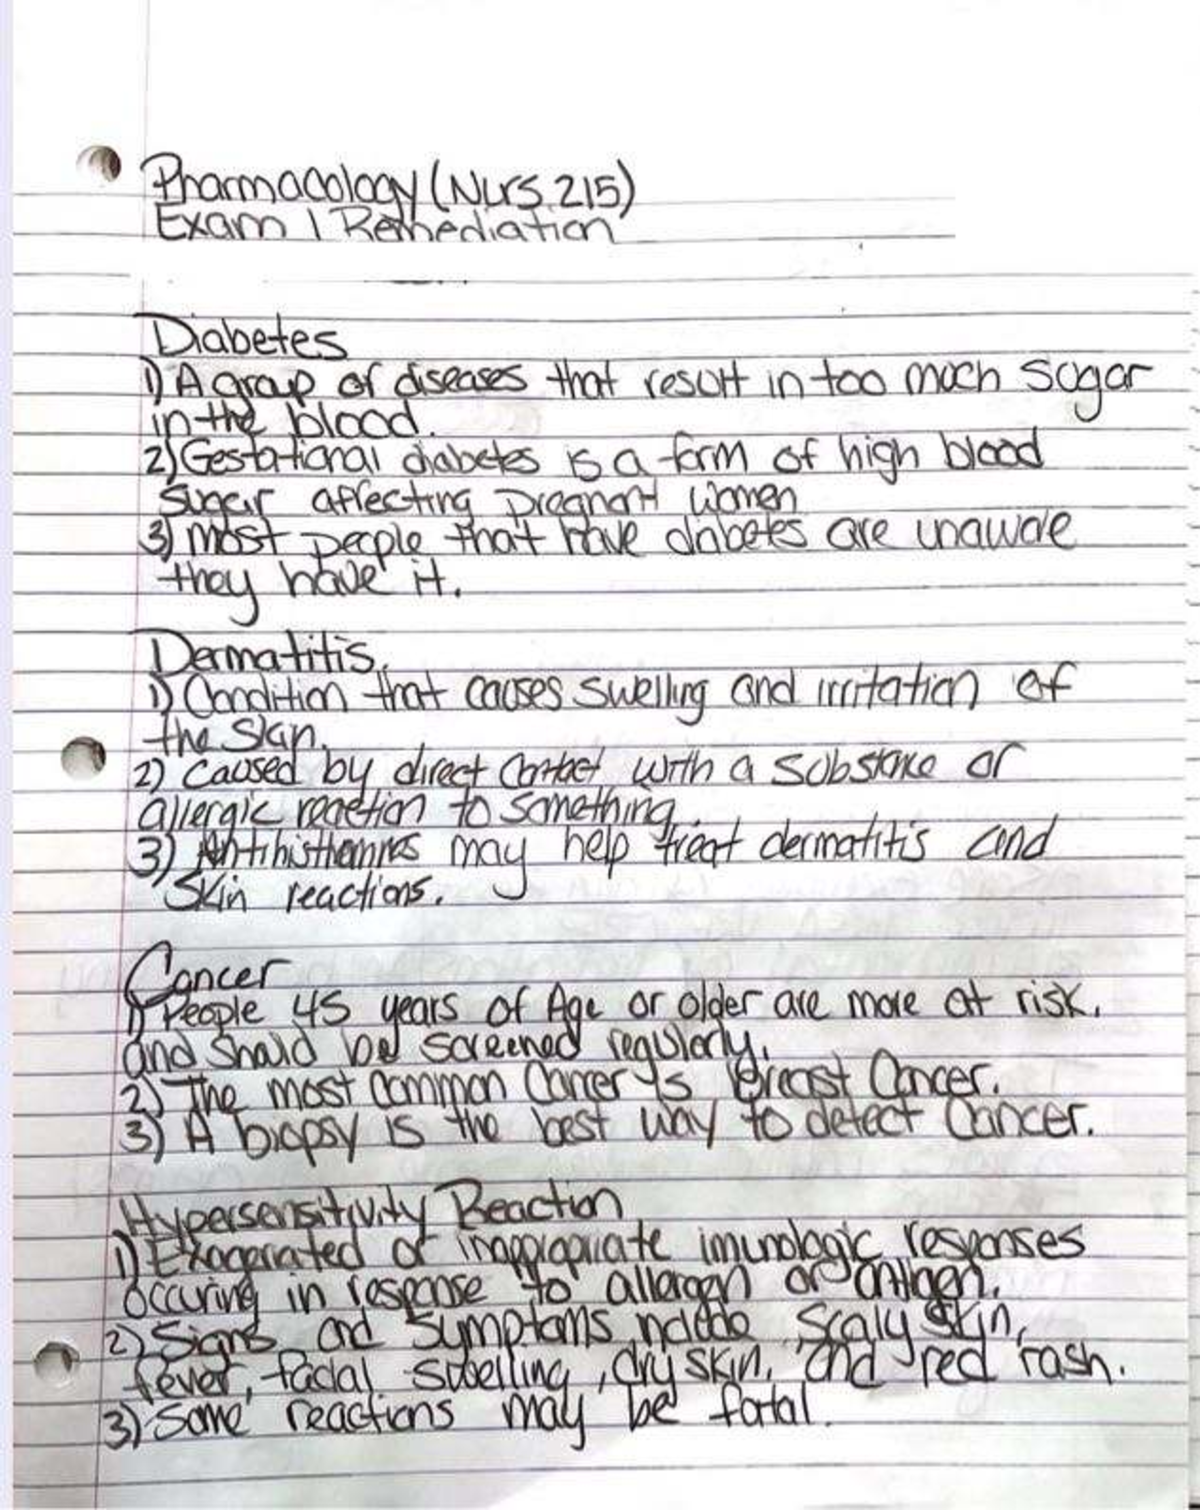 Pharmacology (Nurs. 215)
Exam 1 Remediation
Diabetes
1) A group of diseases that result in too much sugar
in the blood.
2) Gestational diabetes is a form of high blood
sugar affecting pregnant women
3) most people that have diabetes are unaware
they have it.
Dermatitis.
1) Condition that causes swelling and irritation of
the skin.
2) caused by direct contact with a substance or
allergic reaction to something.
3) Antihisthamines may help treat dermatitis and
skin reactions.
Cancer
1) People 45 years of Age or older are more at risk.
and should be screened regularly.
2) The most common Cancer is Breast Cancer.
3) A biopsy is the best way to detect Cancer.
Hypersensitivity Reaction
1) Exagerated or inappropriate imunologic responses
occuring in response to allergen or antigen.
2) Signs and Symptoms include Scaly skin,
fever, facial swelling, dry skin, and red rash.
3) Some reactions may be fatal.